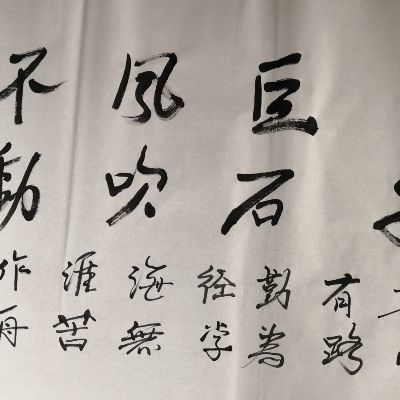 巨石
風吹
不動
有路
勤為
径学
海無
涯苦
作舟